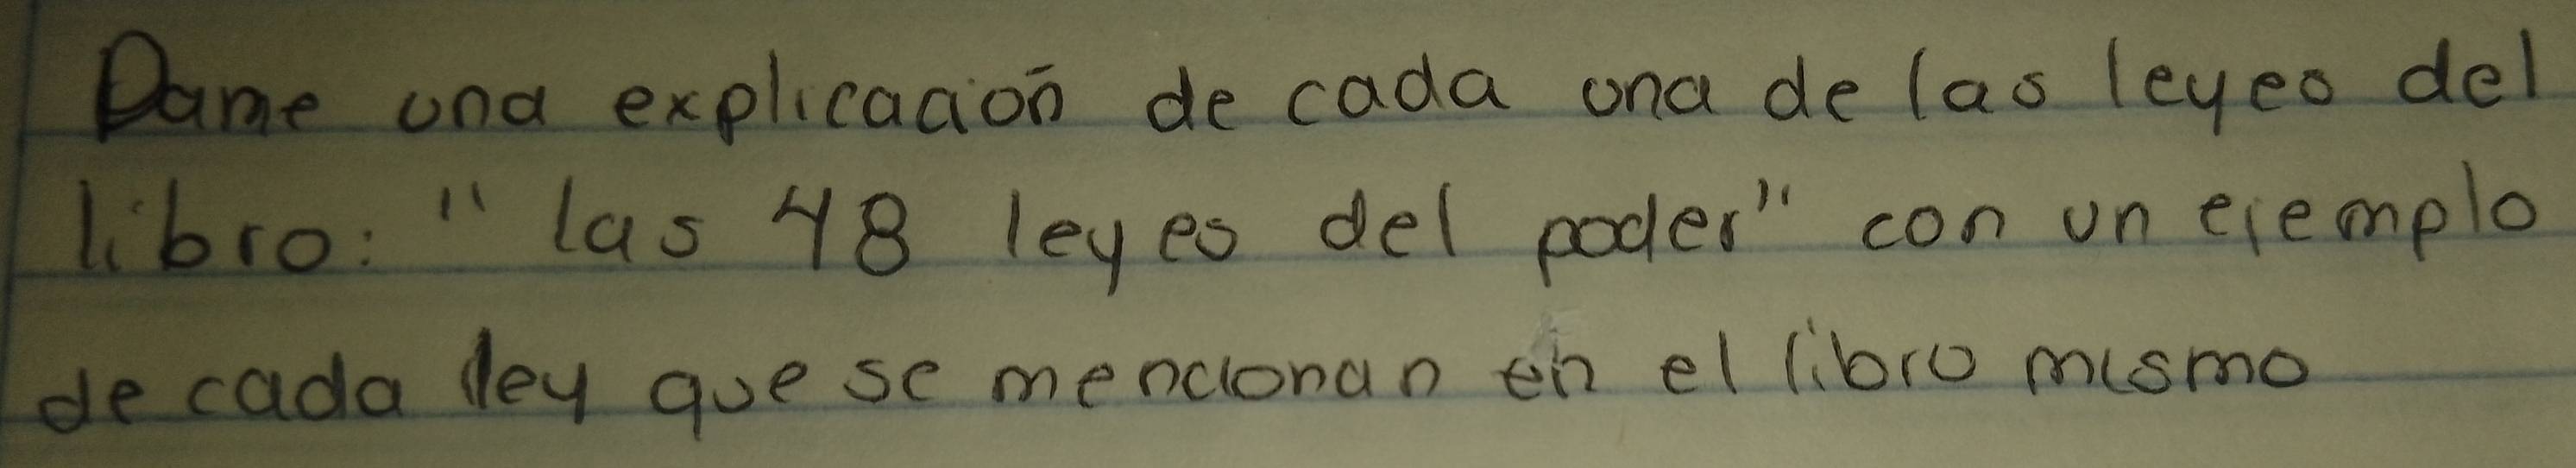 Dame una explicación de cada una de las leyes del
libro: "las 48 leyes del poder" con un ejemplo
de cada ley que se mencionan en el libro mismo